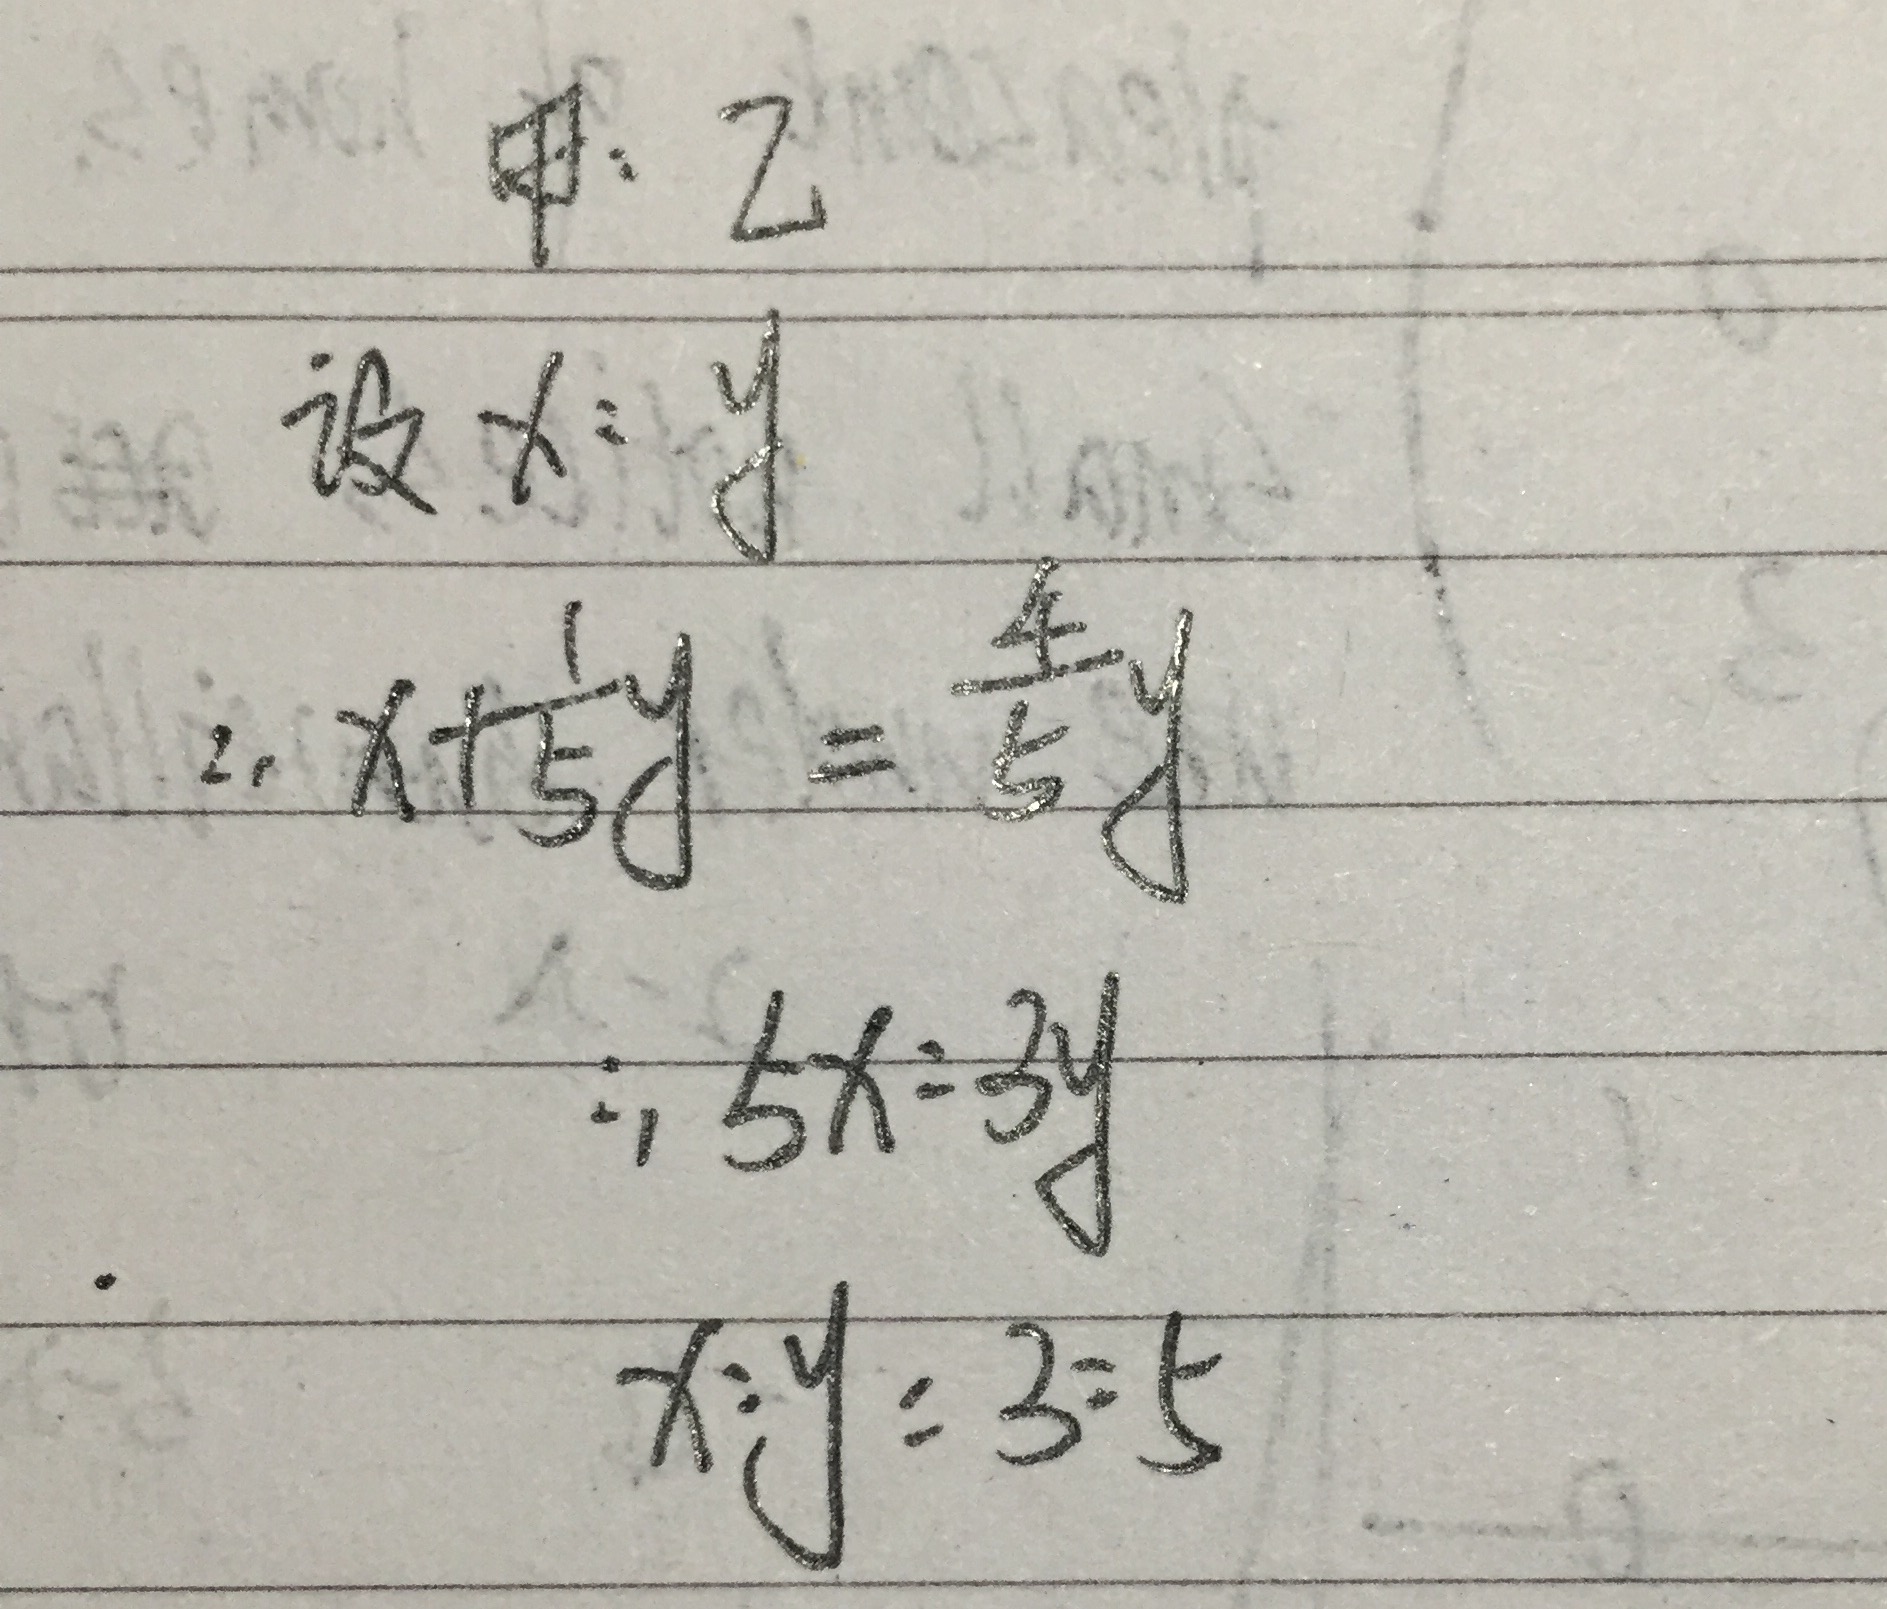 甲:乙
设 x:y
∴ x+1/5y = 4/5y
∴, 5x=3y
x:y=3:5